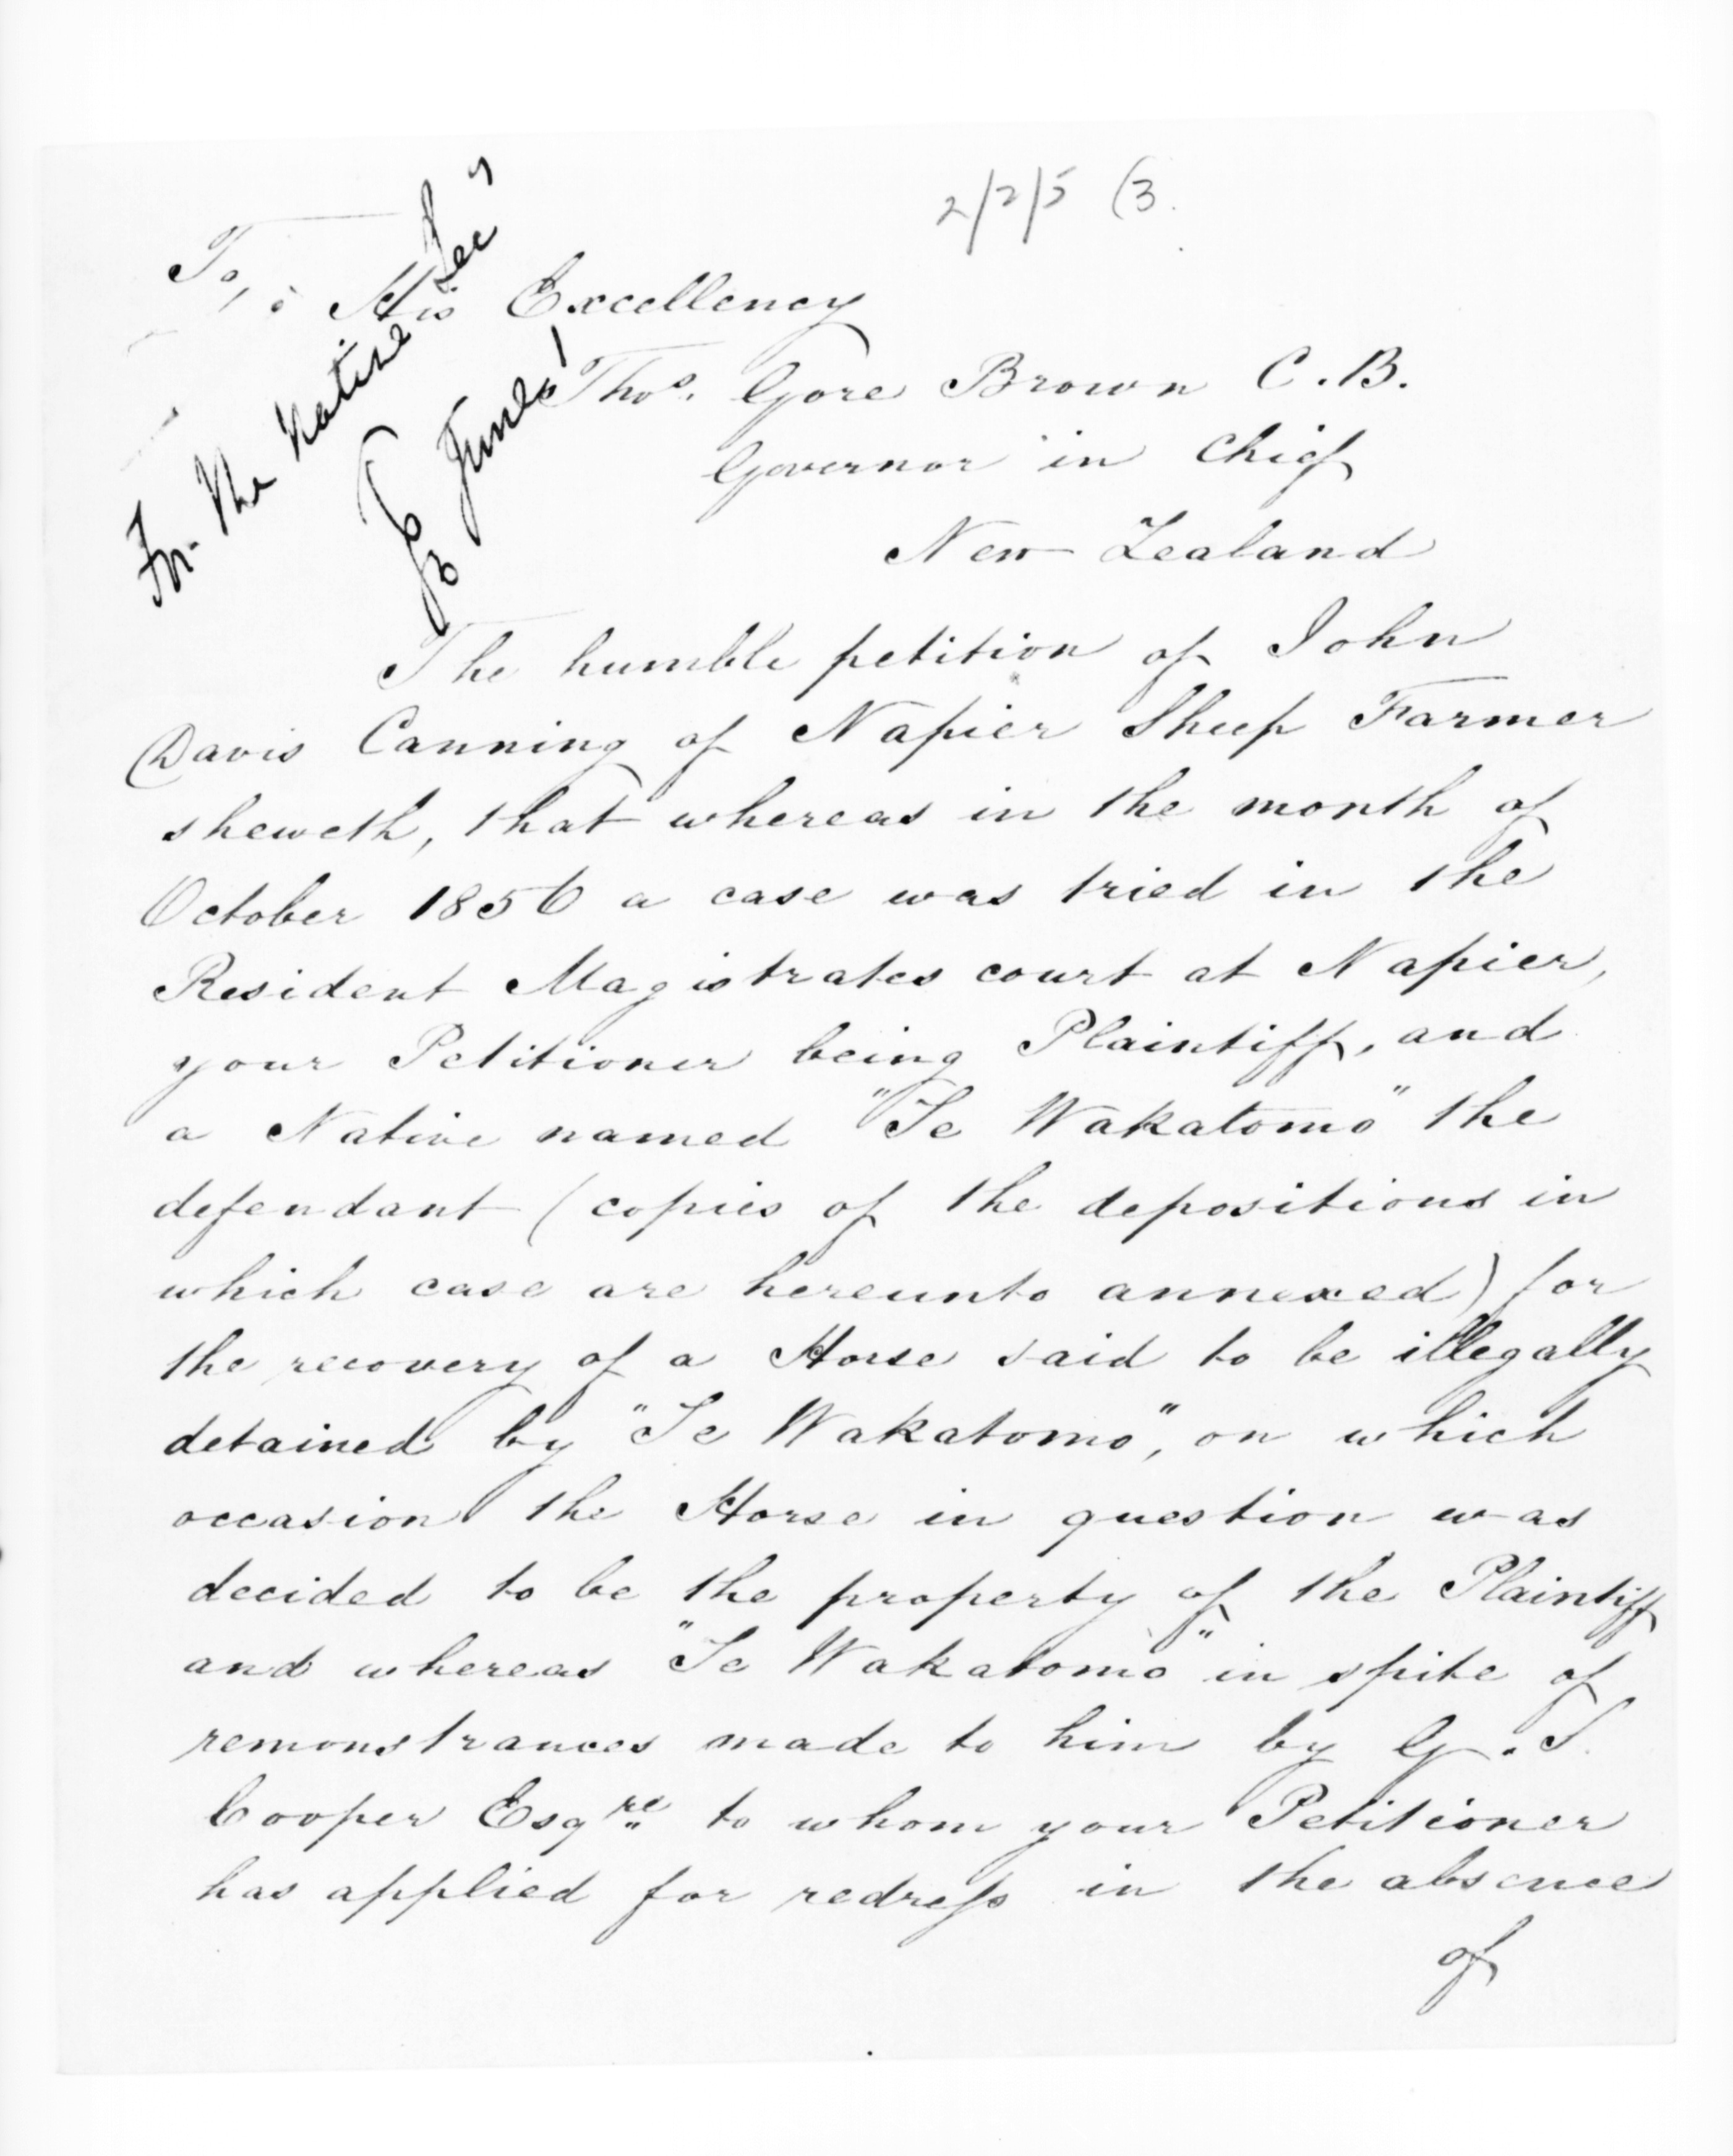 2/2/5 (3.
To,
His Excellency
Thos. Gore Brown C.B.
Governor in Chief
New Zealand
For the Native Secy
June
The humble petition of John
Davis Canning of Napier Sheep Farmer
sheweth, that whereas in the month of
October 1856 a case was tried in the
Resident Magistrates court at Napier,
your Petitioner being Plaintiff, and
a Native named "Te Wakatomo" the
defendant (copies of the depositions in
which case are hereunto annexed) for
the recovery of a Horse said to be illegally
detained by "Te Wakatomo", on which
occasion the Horse in question was
decided to be the property of the Plaintiff
and whereas "Te Wakatomo" in spite of
remonstrances made to him by G. S.
Cooper Esqre to whom your Petitioner
has applied for redress in the absence
of